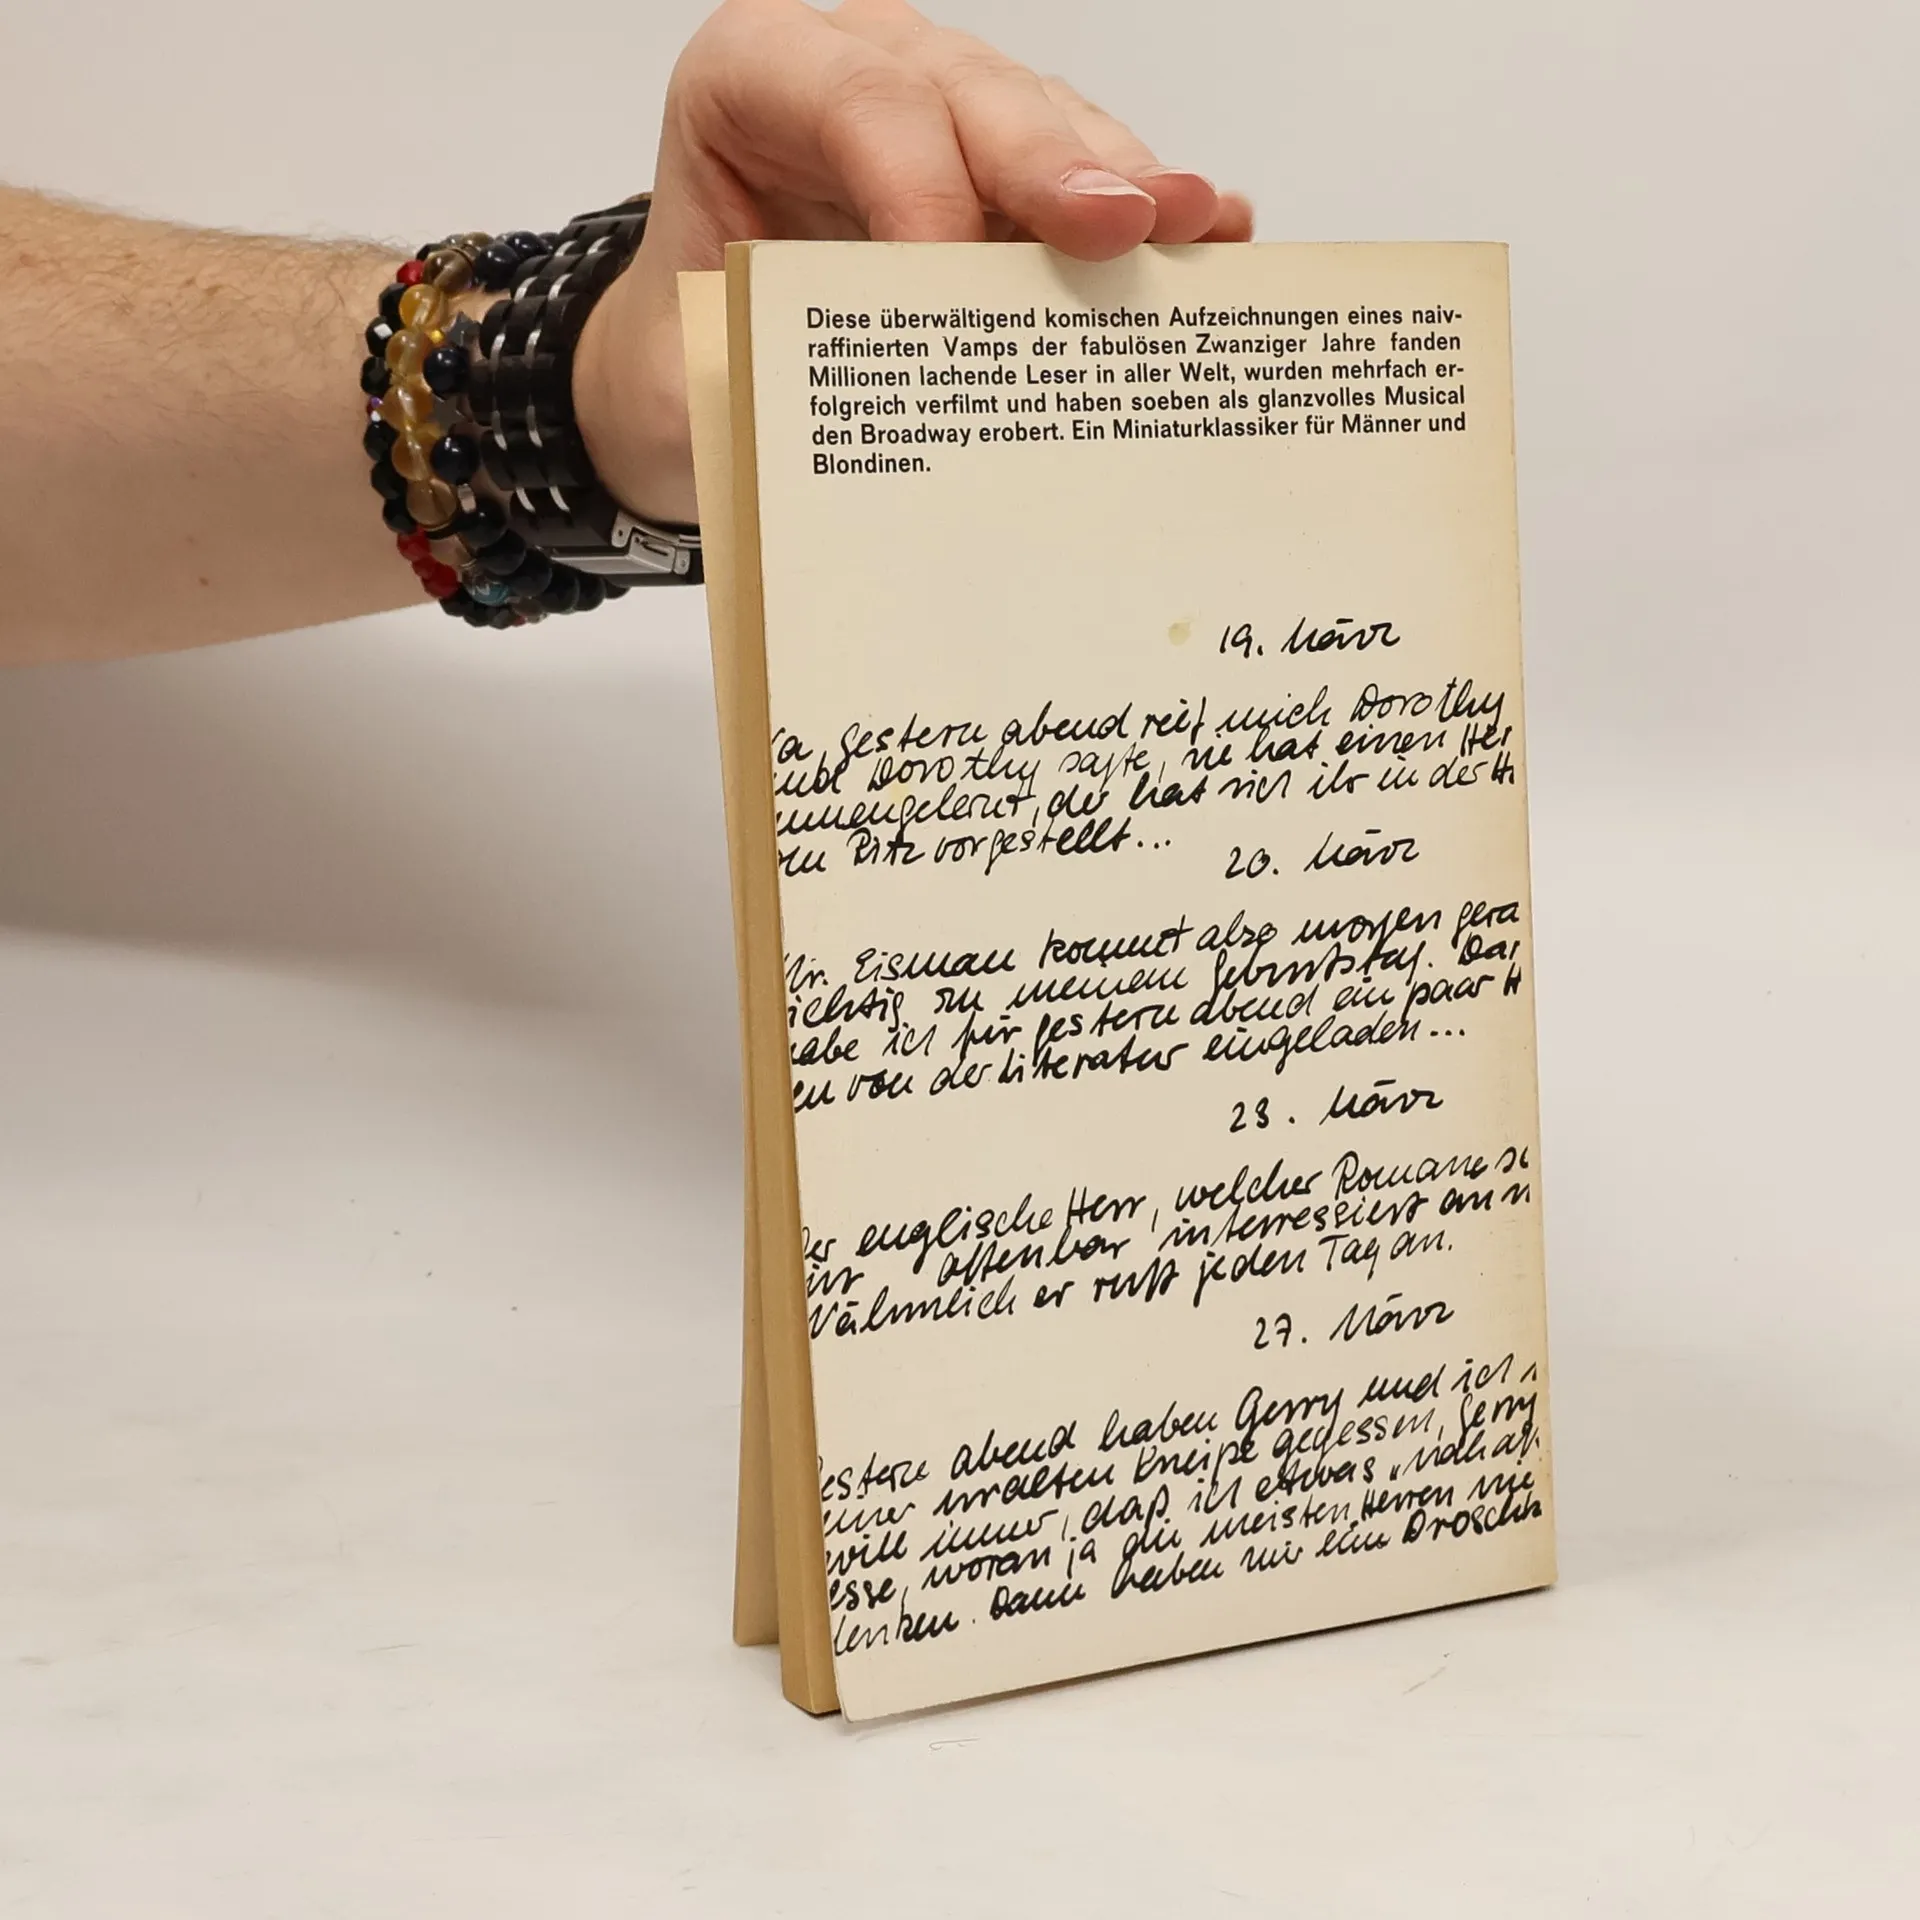 Diese überwältigend komischen Aufzeichnungen eines naiv-
raffinierten Vamps der fabulösen Zwanziger Jahre fanden
Millionen lachende Leser in aller Welt, wurden mehrfach er-
folgreich verfilmt und haben soeben als glanzvolles Musical
den Broadway erobert. Ein Miniaturklassiker für Männer und
Blondinen.
19. März
a, gestern abend rief mich Dorothy
und Dorothy sagte, sie hat einen Her
nnengelernt, der hat sich ihr in der H
om Ritz vorgestellt...
20. März
Mr. Eisman kommt also morgen gera
ichtig zu meinem Geburtstag. Dar
habe ich für gestern abend ein paar H
en von der Literatur eingeladen...
23. März
er englische Herr, welcher Romane sc
ist offenbar interressiert an m
Nähmlich er ruft jeden Tag an.
27. März
estern abend haben Gerry und ich
einer uralten Kneipe gegessen, Gerry
will immer, daß ich etwas „nahaf
esse, woran ja die meisten Herren nie
denken. Dann haben wir eine Droschk